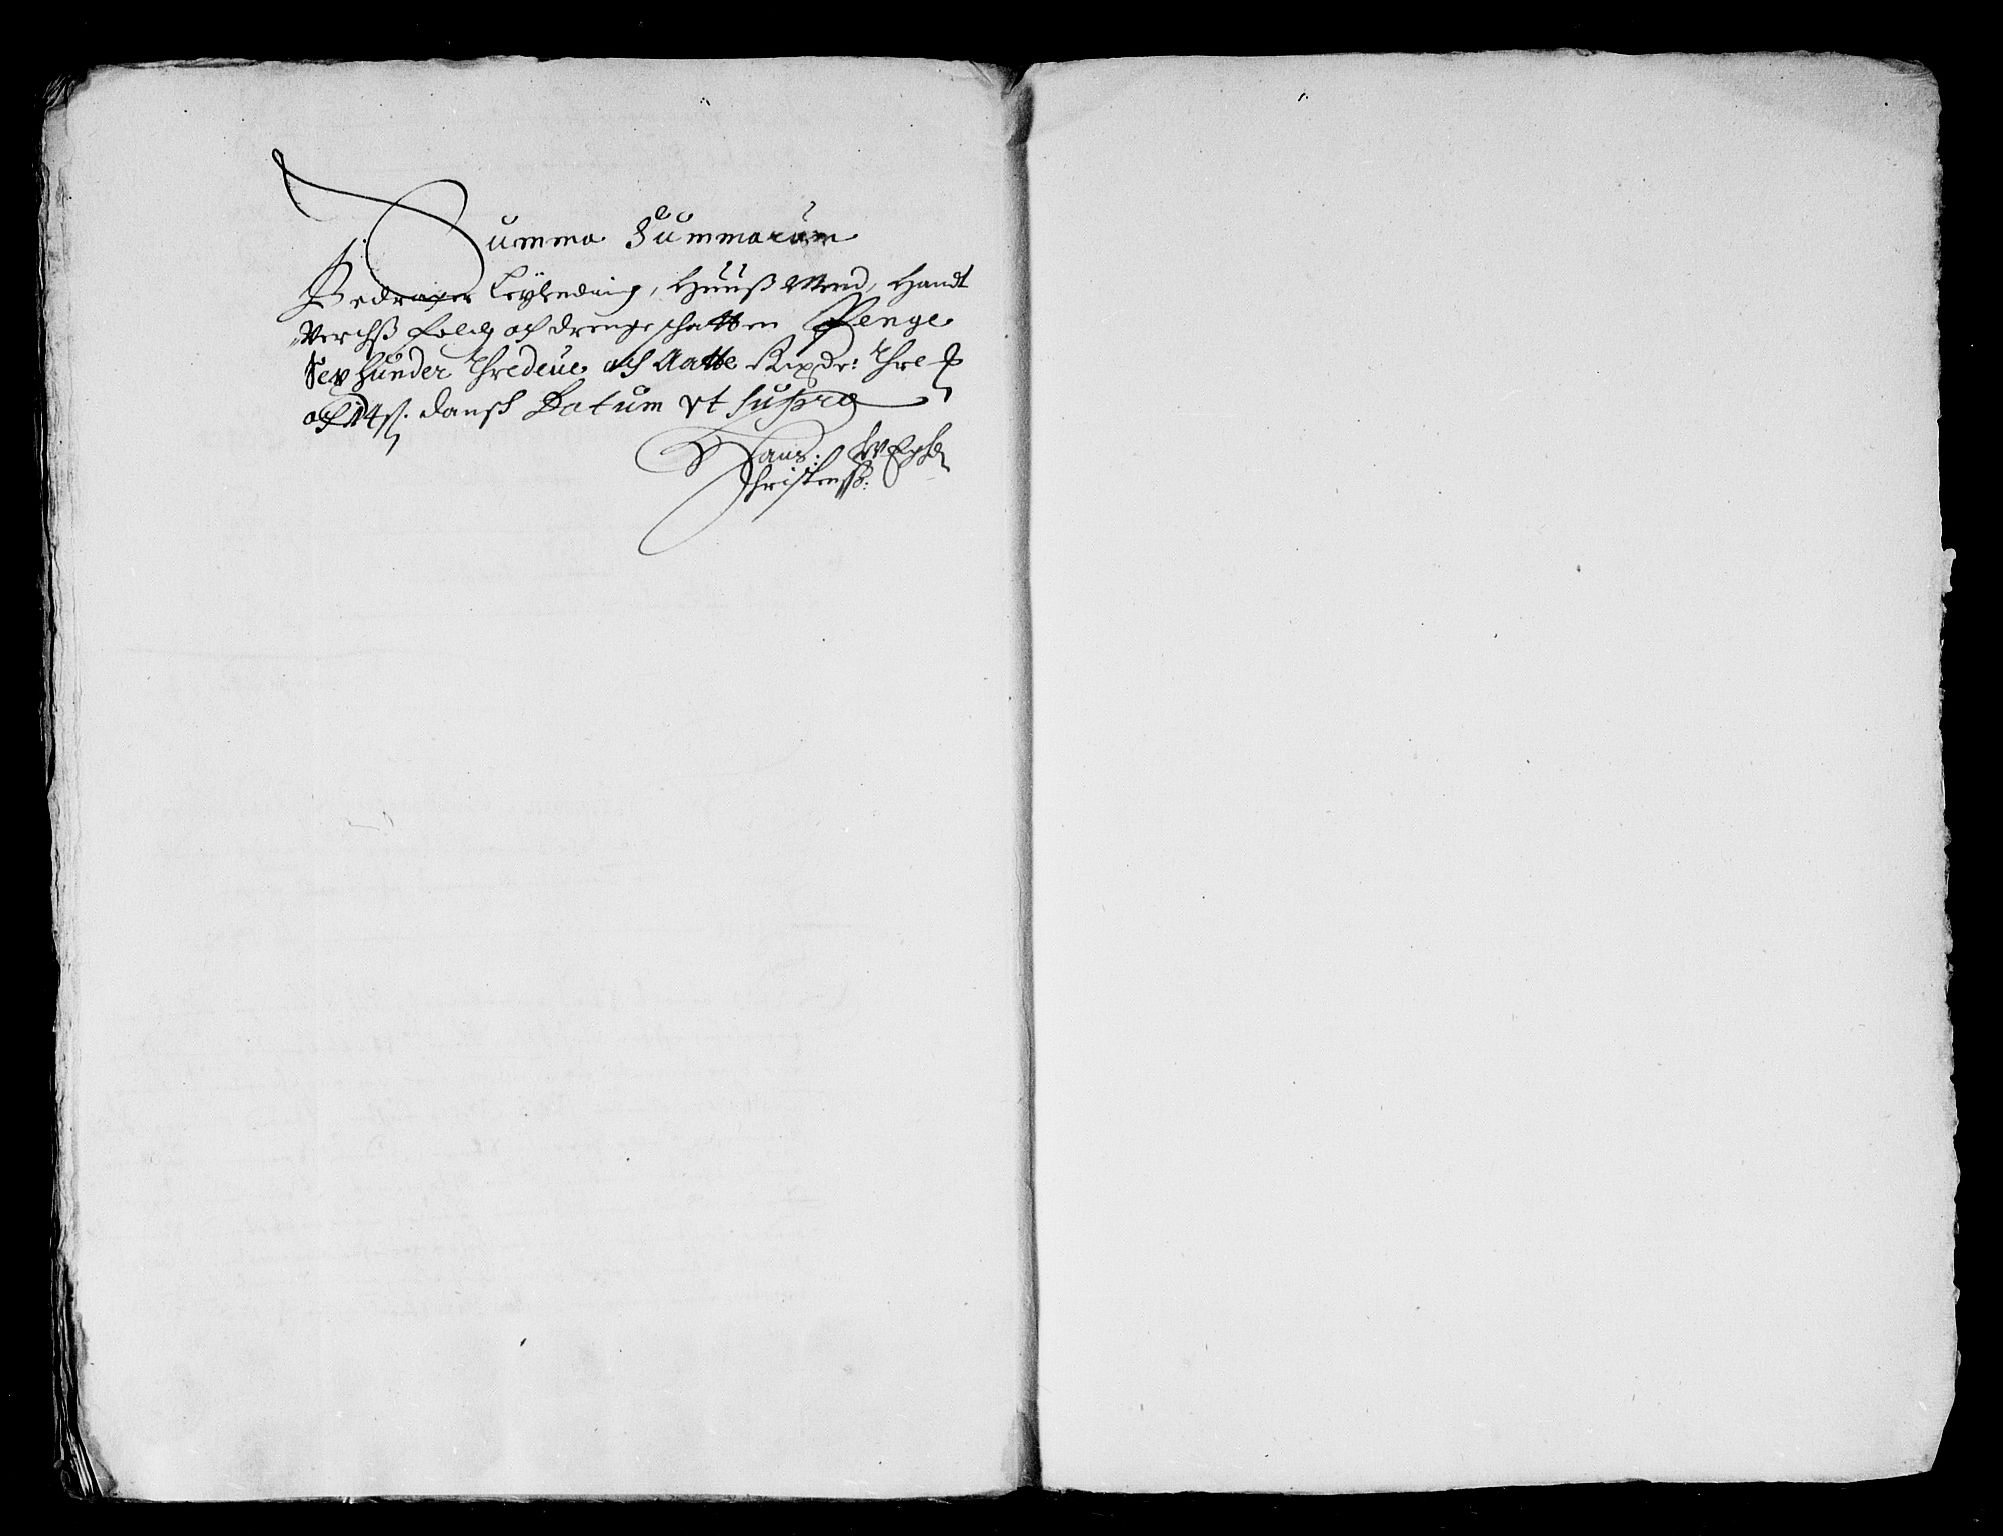 Summa Summarum
Bedrager Leylending, Huuß Mend, Handt
Verchß folch och drenge schatten Penge
Sex hunder Thredeue och Aatte Rixdr: Thre
och 14 ß. dansch Datum vt supra
Hans:
Christenß: